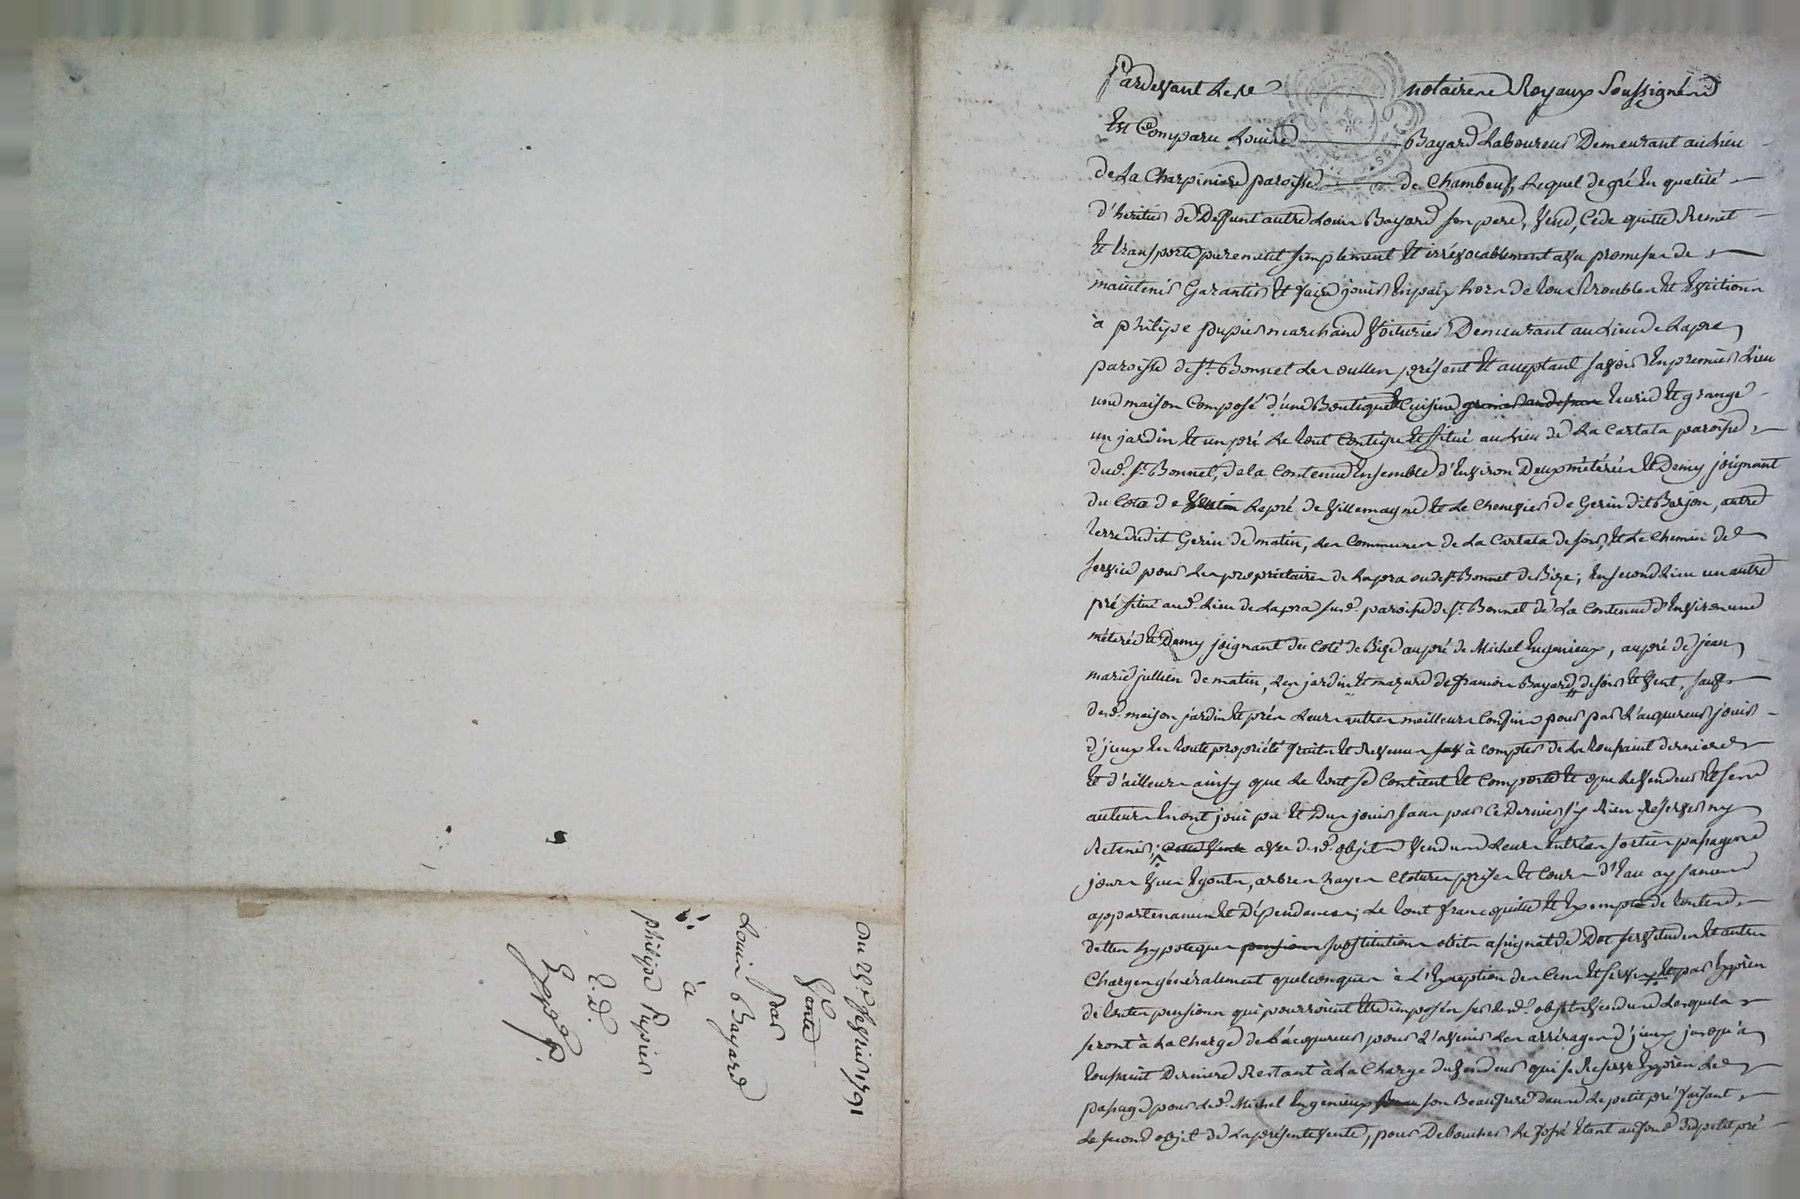 Du 25e fevrier 1791
Vente
par
Louis Bayard
à
philipe Pupier
E. D.
Expo. p.
Pardevant Les notaires Royaux Soussignés
Est Comparu Louis Bayard Laboureur Demeurant au Lieu
de La Charpinière paroisse de Chambeuf, Lequel de gré En qualité
d'heritier de Deffunt autre Louis Bayard son pere, Vend, Cede quitte Remet
Et transporte purement simplement Et irrévocablement avec promesse de
maintenir Garantir Et faire jouir En paix hors de tous troubles Et Evictions
à philipe pupier marchand Voiturier Demeurant au Lieu de Lapra
paroisse de St. Bonnet Les oulles présent Et acceptant savoir En premier Lieu
une maison Composé d'une Boutique Cuisine Ecurie Et grange
un jardin Et un pré Le tout Contigu Et situé au Lieu de La Cartala paroisse
dud. St. Bonnet, de la Contenue Ensemble d'Environ Deux métérées Et Demy joignant
du Coté de Le pré de Villemagne Et Le Chenevier de Gerin dit Borjon, autre
terre dudit Gerin de matin, Les Communes de La Cartala de soir, Et Le Chemin de
service pour Les propriétaires de Lapra ou de St. Bonnet de Bize; En second Lieu un autre
pré situé aud. Lieu de Lapra sud. paroisse de St. Bonnet de La Contenue d'Environ une
métérée Et Demy joignant du Coté de Bize au pré de Michel Engenieux, au pré de jean
marie jullien de matin, Les jardin Et mazure de francois Bayard de soir Et Vent, sauf
desd. maison jardin Et prés Leurs autres meilleurs Confins pour par L'acquereur jouir
d'jceux En toute propriété fruits Et Revenus à compter de La toussaint derniere
Et d'ailleurs ainsy que Le tout se Contient Et Comporte Et que Le Vendeur Et ses
auteurs En ont joui pu Et Du jouir sans par Ce Dernier s'y Rien Reserver ny
Retenir; avec desd. objets Vendus Leurs Entrées sorties passages
jours Vues Egouts, arbres hayes Clotures prises Et Cours d'Eau aysances
appartenances Et Dépendances; Le tout franc quitte Et Exempt de toutes
dettes hypoteques substitutions obits assignat de Dot servitudes Et autres
Charges généralement quelconques à L'Exception des Cens Et servis Et par Exprès
de toutes pensions qui pourroient Etre imposées sur Lesd. objets Vendus Lesquels
seront à La Charge de L'acquereur pour L'avenir Les arrérages d'jceux jusqu'à
toussaint Derniere Restant à La Charge du Vendeur qui se Reserve Exprès Le
passage pour Led. Michel Engenieux son Beaufrere dans Le petit pré faisant
Le second objet de La présente Vente, pour Deboucher Le fossé Etant au fond dud. petit pré